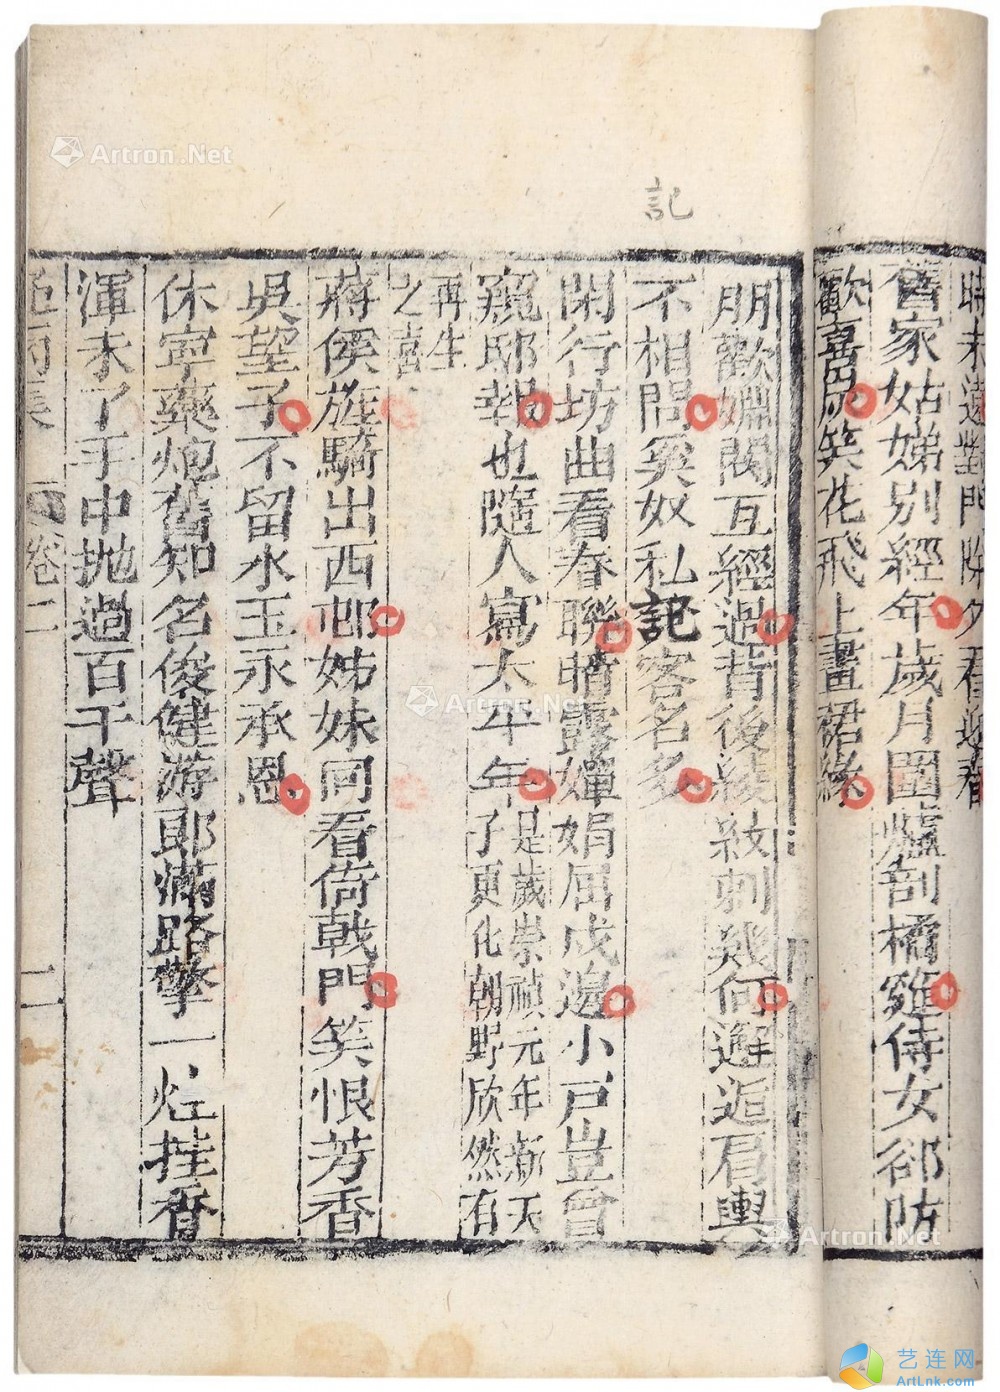 時未遠對門除夕看迎春
舊家姑娣別經年歲月圍爐剖橘雞侍女部防
歡喜尉笑花飛上畫裙緣
朋歡嫺閣互經過背後綾紋刺幾何邂逅肩輿
不相問奚奴私記客名多
記
閑行坊曲看春聯晴露嬋娟屈戍邊小戸豈曾
窺邸報也隨人寫太平年是歲崇禎元年新天
子更化朝野欣然有
再生
之喜
蔣侯旌騎出西邨姊妹同看倚戟門笑恨芳香
吳望子不留水玉永承恩
休寧藥炮舊知名俊健游郎滿路擎一炷挂香
渾未了手中拋過百千聲
范雨集 卷二 二
Artron.Net
Artron.Net
Artron.Net
艺连网
ArtLnk.com